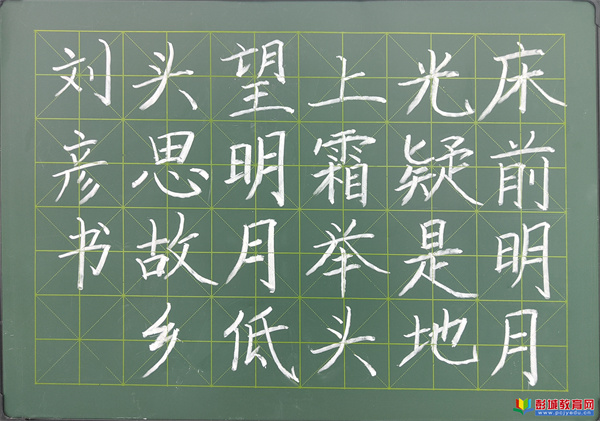 床前明月
光疑是地
上霜举头
望明月低
头思故乡
刘彦书
彭城教育网
www.pcjyedu.cn